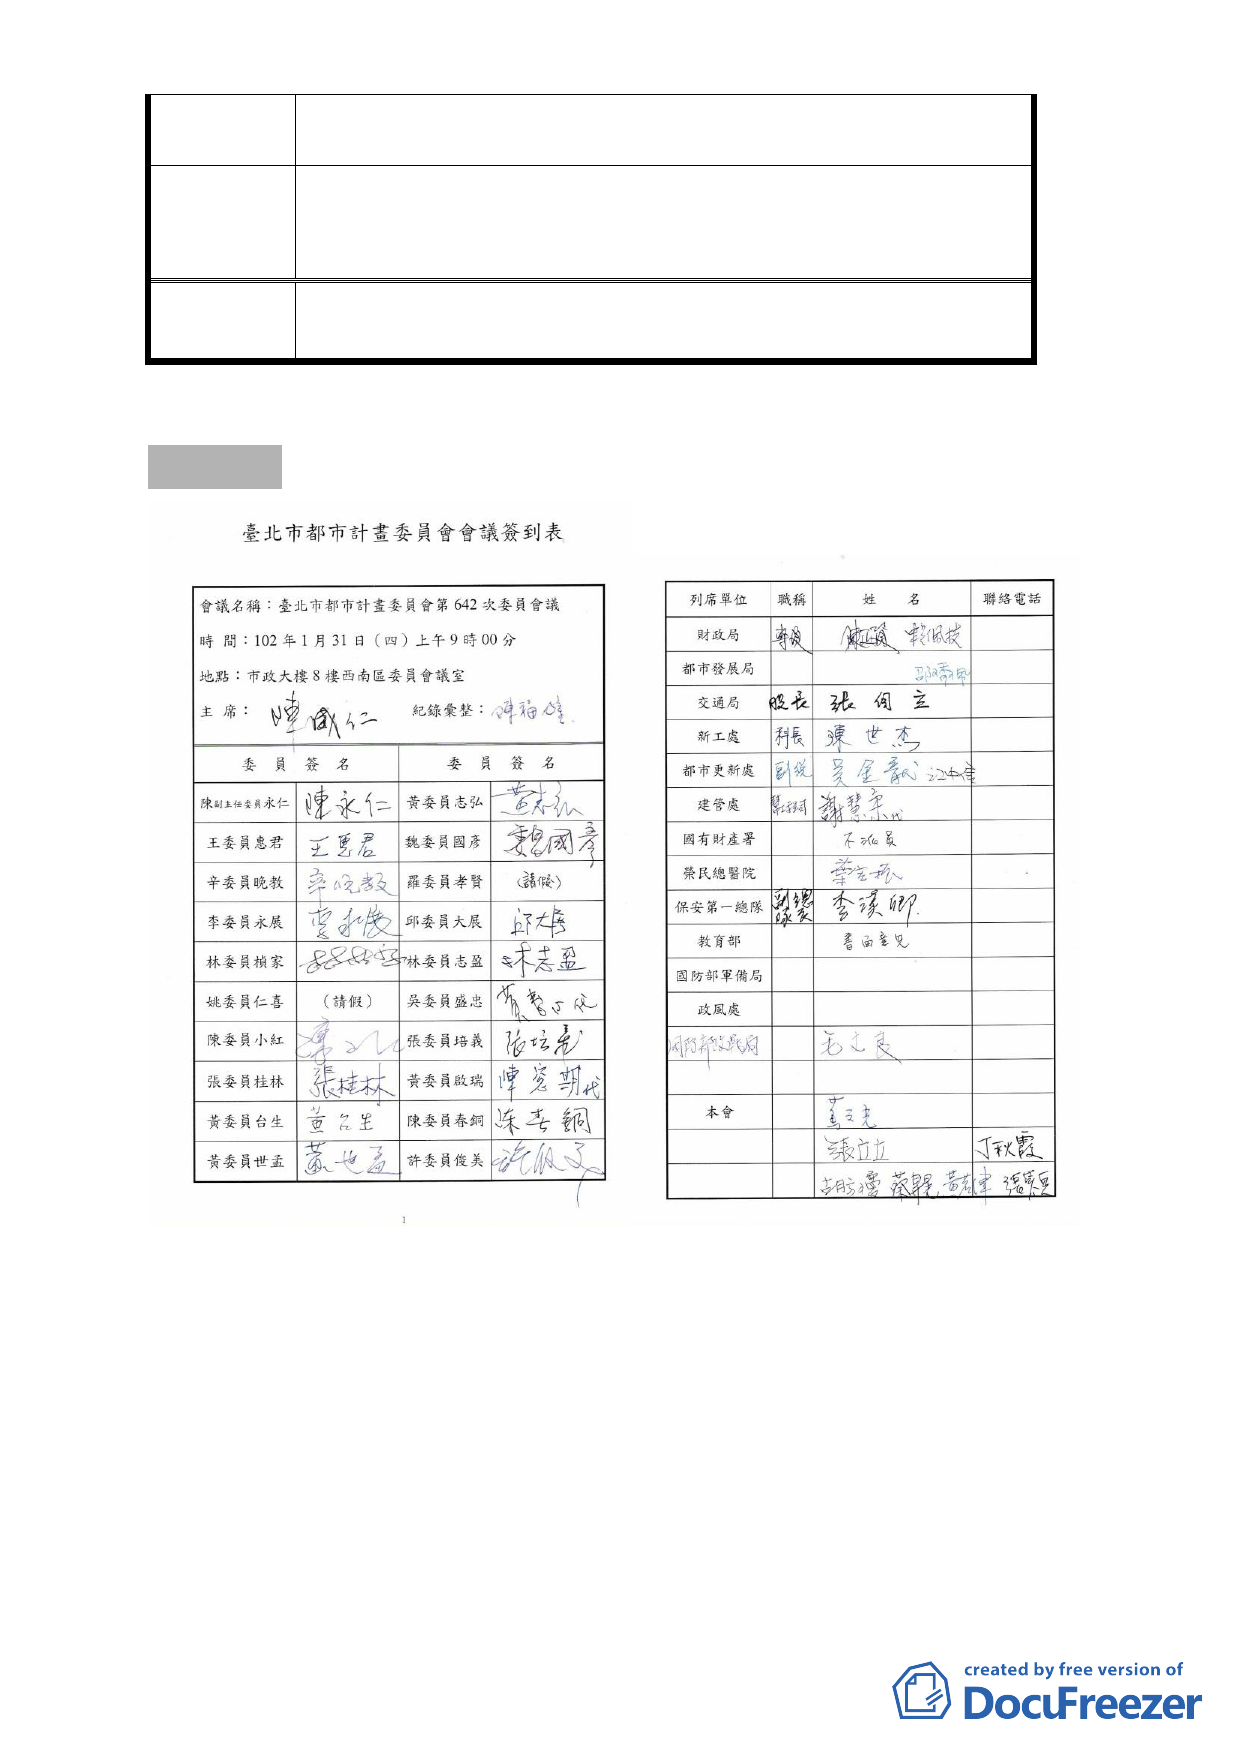 臺北市都市計畫委員會會議簽到表
會議名稱：臺北市都市計畫委員會第 642 次委員會議
時 間：102 年 1 月 31 日（四）上午 9 時 00 分
地點：市政大樓 8 樓西南區委員會議室
主 席： 陳威仁 紀錄彙整：
委 員 簽 名 委 員 簽 名
陳副主任委員永仁 陳永仁 黃委員志弘 黃志弘
王委員惠君 王惠君 魏委員國彥 魏國彥
辛委員晚教 辛晚教 羅委員孝賢 (請假)
李委員永展 李永展 邱委員大展 邱大展
林委員楨家 林委員志盈 林志盈
姚委員仁喜 （請假） 吳委員盛忠
陳委員小紅 張委員培義 張培義
張委員桂林 張桂林 黃委員啟瑞
黃委員台生 黃台生 陳委員春銅 陳春銅
黃委員世孟 黃世孟 許委員俊美 許俊美
1
列席單位 職稱 姓 名 聯絡電話
財政局 專員
都市發展局
交通局 股長
新工處 科長 陳世杰
都市更新處
建管處
國有財產署 不派員
榮民總醫院
保安第一總隊 副總隊長 李漢卿
教育部 書面意見
國防部軍備局
政風處
本會
張立立 丁秋霞
created by free version of
DocuFreezer